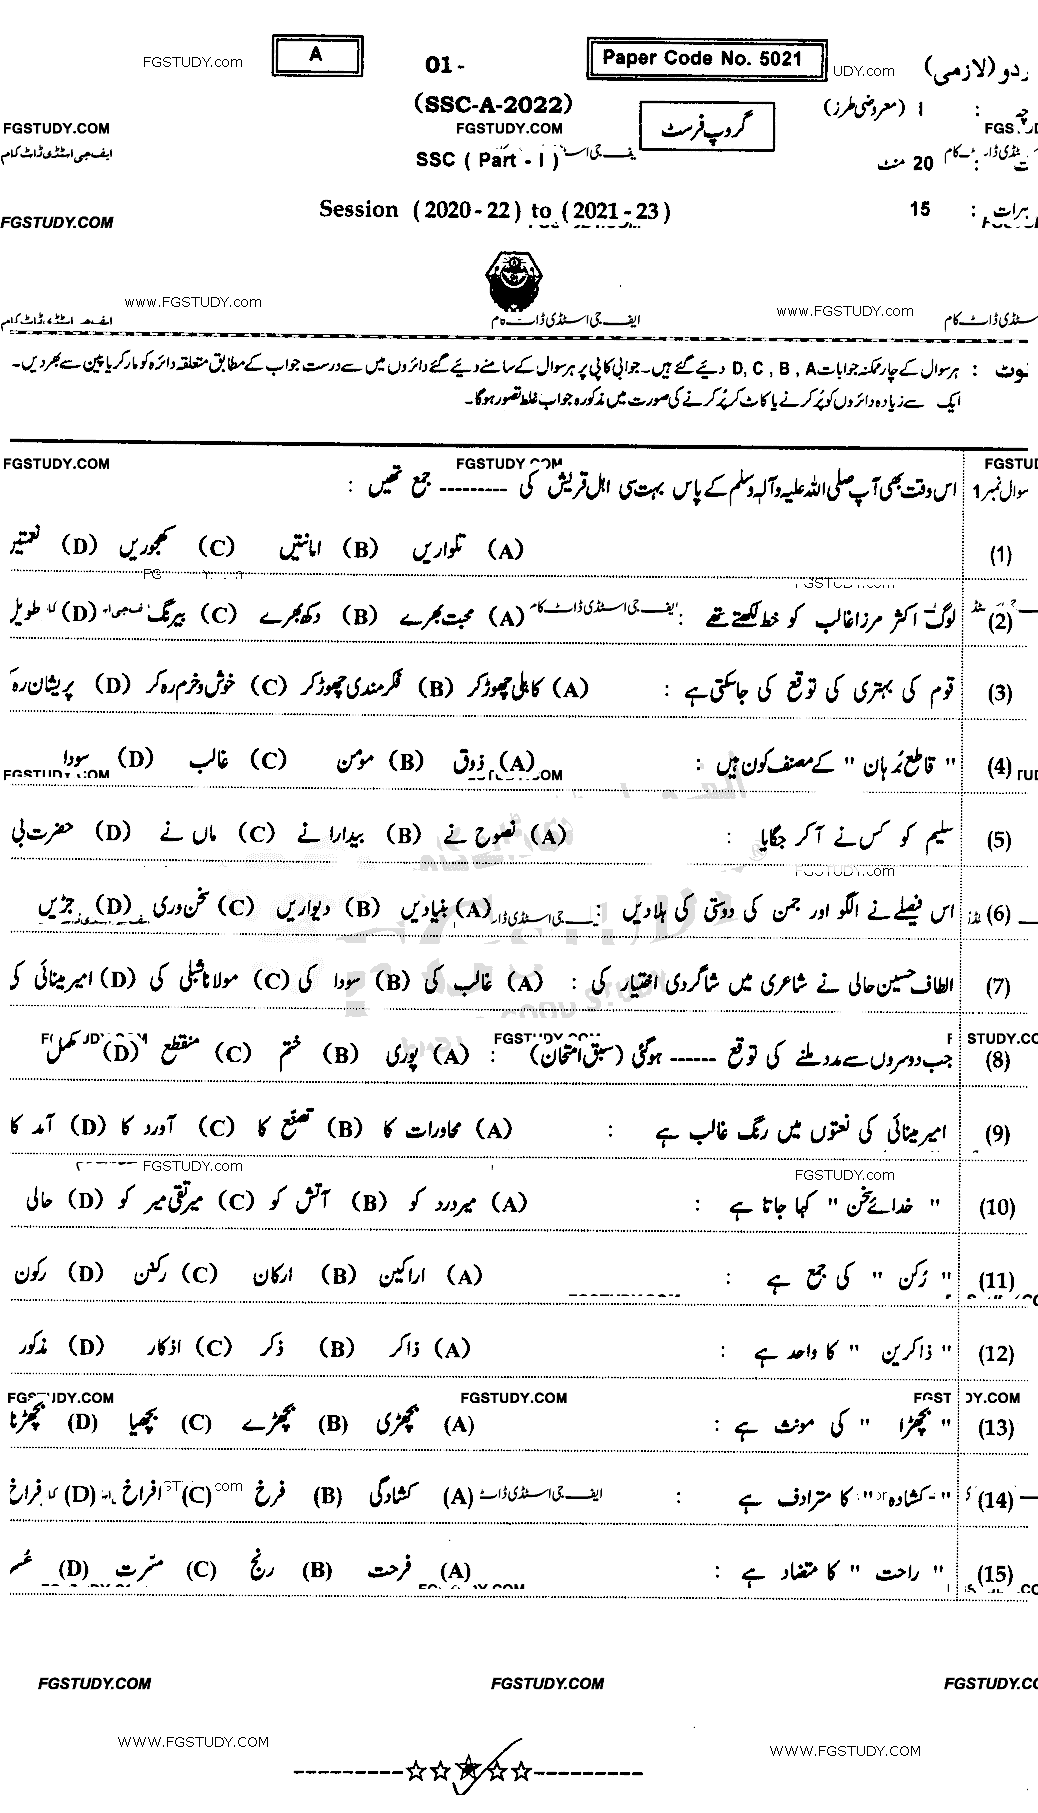 FGSTUDY.com A 01- Paper Code No. 5021 UDY.com ردو (لازمی)
(SSC-A-2022) گروپ فرسٹ I (معروضی طرز) : چہ
FGSTUDY.COM FGSTUDY.COM
ایف جی اسٹڈی ڈاٹ کام SSC ( Part - I ) 20 منٹ :
FGSTUDY.COM Session ( 2020 - 22 ) to ( 2021 - 23 ) 15 :
www.FGSTUDY.com www.FGSTUDY.com
ایف جی اسٹڈی ڈاٹ کام
نوٹ : ہر سوال کے چار ممکنہ جوابات D, C, B, A دیئے گئے ہیں۔ جوابی کاپی پر ہر سوال کے سامنے دیئے گئے دائروں میں سے درست جواب کے مطابق متعلقہ دائرہ کو مارکر یا پین سے بھر دیں۔
ایک سے زیادہ دائروں کو پُر کرنے یا کاٹ کر پُر کرنے کی صورت میں مذکورہ جواب غلط تصور ہوگا۔
FGSTUDY.COM FGSTUDY.COM FGSTUD
سوال نمبر 1 اس وقت بھی آپ صلی اللہ علیہ وآلہ وسلم کے پاس بہت سی اہل قریش کی --------- جمع تھیں :
(1) (A) تلواریں (B) امانتیں (C) کھجوریں (D) نعمتیں
(2) لوگ اکثر مرزا غالب کو خط لکھتے تھے : (A) محبت بھرے (B) دکھ بھرے (C) بیرنگ (D) طویل
(3) قوم کی بہتری کی توقع کی جا سکتی ہے : (A) کاہلی چھوڑ کر (B) فکر مندی چھوڑ کر (C) خوش و خرم رہ کر (D) پریشان رہ
(4) " قاطع بُرہان " کے مصنف کون ہیں : (A) ذوق (B) مومن (C) غالب (D) سودا
(5) سلیم کو کس نے آ کر جگایا : (A) نصوح نے (B) بیدارا نے (C) ماں نے (D) حضرت بی
(6) اس فیصلے نے الگو اور جمن کی دوستی کی ہلا دیں : (A) بنیادیں (B) دیواریں (C) سخن وری (D) جڑیں
(7) الطاف حسین حالی نے شاعری میں شاگردی اختیار کی : (A) غالب کی (B) سودا کی (C) مولانا شبلی کی (D) امیر مینائی کی
(8) جب دوسروں سے مدد ملنے کی توقع ------ ہو گئی (سبق امتحان) : (A) پوری (B) ختم (C) منقطع (D) مکمل
(9) امیر مینائی کی نعتوں میں رنگ غالب ہے : (A) محاورات کا (B) تصنّع کا (C) آورد کا (D) آمد کا
FGSTUDY.com FGSTUDY.com
(10) " خدائے سخن " کہا جاتا ہے : (A) میر درد کو (B) آتش کو (C) میر تقی میر کو (D) حالی
(11) " رُکن " کی جمع ہے : (A) اراکین (B) ارکان (C) رکن (D) رکون
(12) " ذاکرین " کا واحد ہے : (A) ذاکر (B) ذکر (C) اذکار (D) مذکور
FGSTUDY.COM FGSTUDY.COM
(13) " بچھڑا " کی مونث ہے : (A) بچھڑی (B) بچھڑے (C) بچھیا (D) بچھڑنا
(14) " کشادہ " کا مترادف ہے : (A) کشادگی (B) فرخ (C) افراخ (D) فراخ
(15) " راحت " کا متضاد ہے : (A) فرحت (B) رنج (C) مسّرت (D)
FGSTUDY.COM FGSTUDY.COM FGSTUDY.CO
WWW.FGSTUDY.COM WWW.FGSTUDY.COM